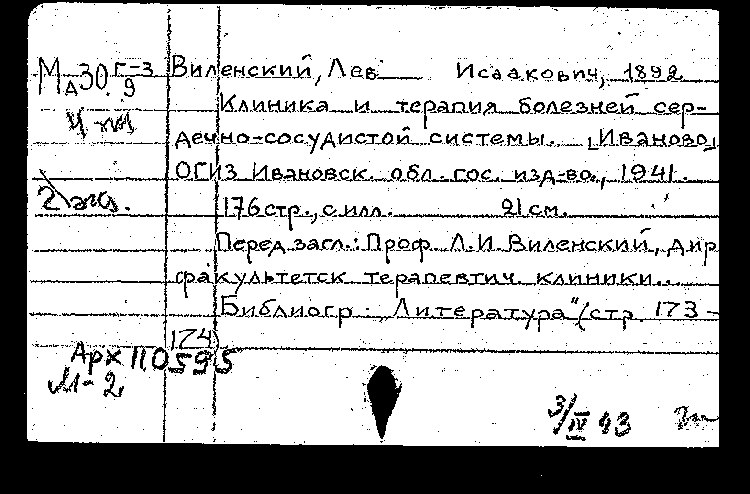 МА30 Г-3/9
Виленский, Лев Исаакович, 1892
Клиника и терапия болезней сер-
дечно-сосудистой системы. [Иваново]
ОГИЗ Ивановск. обл. гос. изд-во, 1941.
2 экз.
176 стр., с илл. 21 см.
Перед загл.: Проф. Л.И. Виленский, дир
факультетск терапевтич. клиники...
Библиогр: „Литература" (стр. 173-
174)
Арх 110595
М-2
3/IV 43